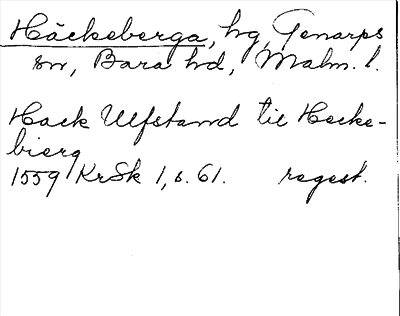 Häckeberga, hg, Genarps
sn, Bara hd, Malm. l.
Hack Ulfstand til Hecke-
bierg
1559 KrSk 1, s. 61. regest.